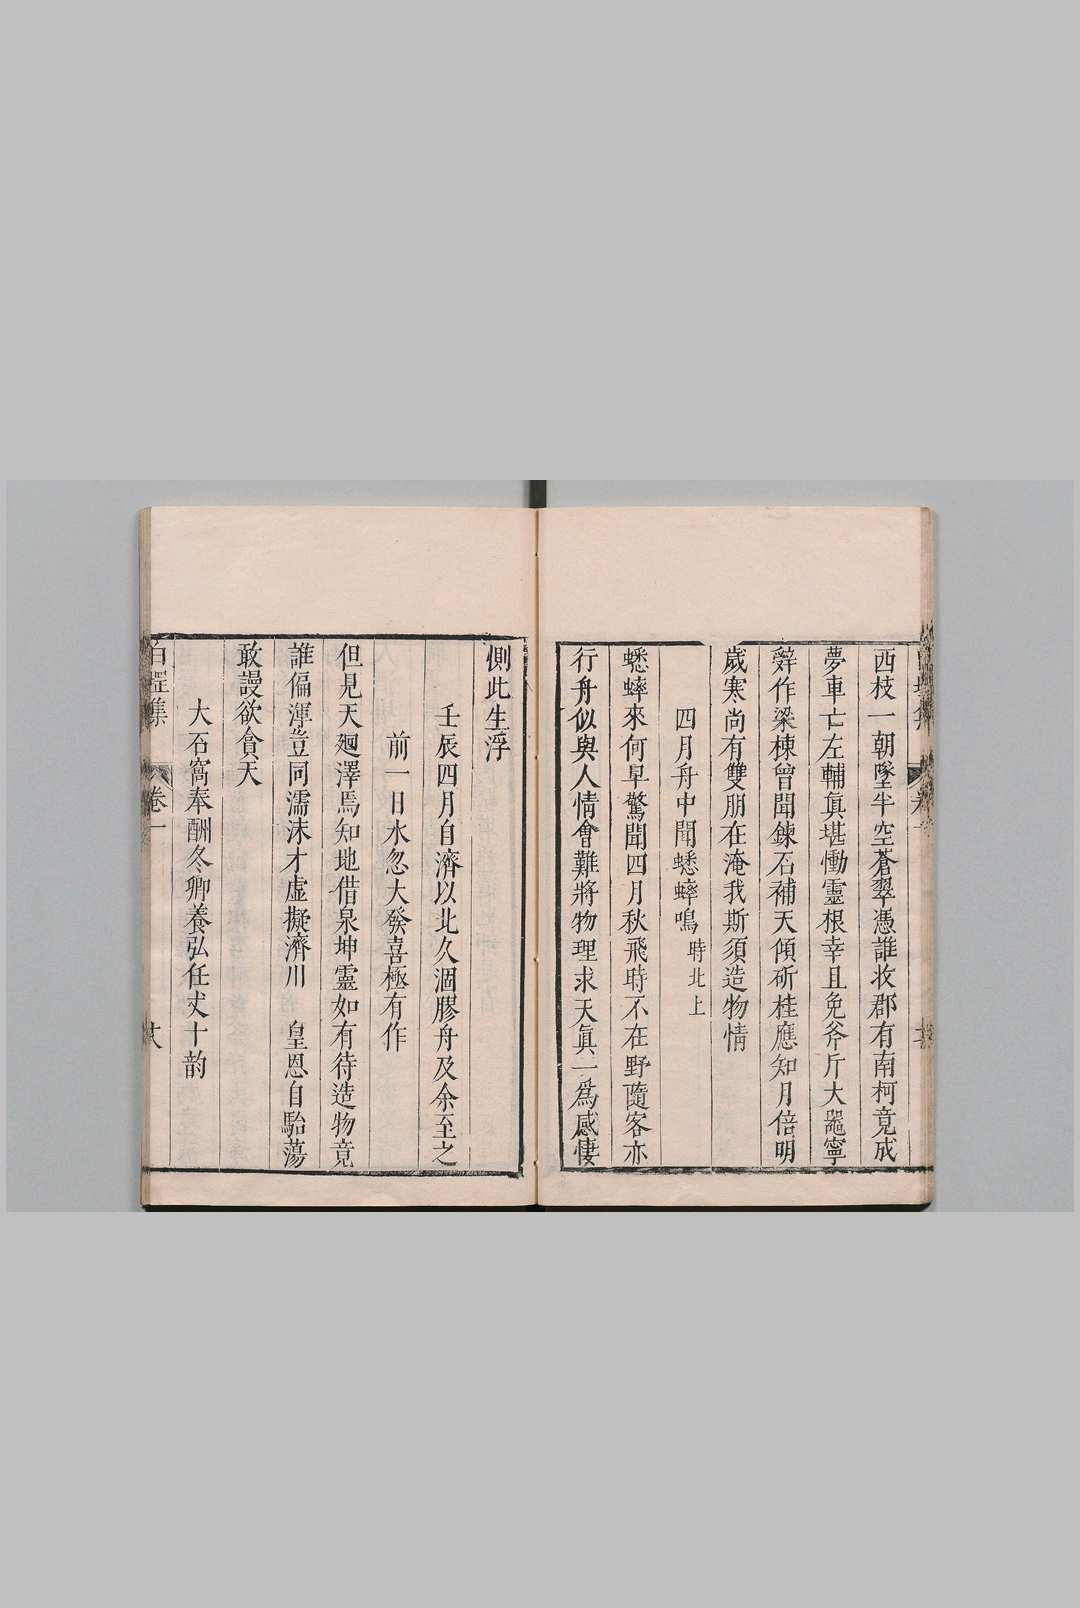 西枝一朝墜半空蒼翠憑誰收郡有南柯竟成
夢車亡左輔眞堪慟靈根幸且免斧斤大器寧
辭作梁棟曾聞鍊石補天傾斫桂應知月倍明
歲寒尚有雙朋在淹我斯須造物情
四月舟中聞蟋蟀鳴 時北上
蟋蟀來何早驚聞四月秋飛時不在野隨客亦
行舟似與人情會難將物理求天眞一爲感悽
惻此生浮
壬辰四月自濟以北久涸膠舟及余至之
前一日水忽大發喜極有作
但見天廻澤焉知地借泉坤靈如有待造物竟
誰偏渾豈同濡沫才虛擬濟川 皇恩自駘蕩
敢謾欲貪天
大石窩奉酬冬卿養弘任丈十韵
集 卷一